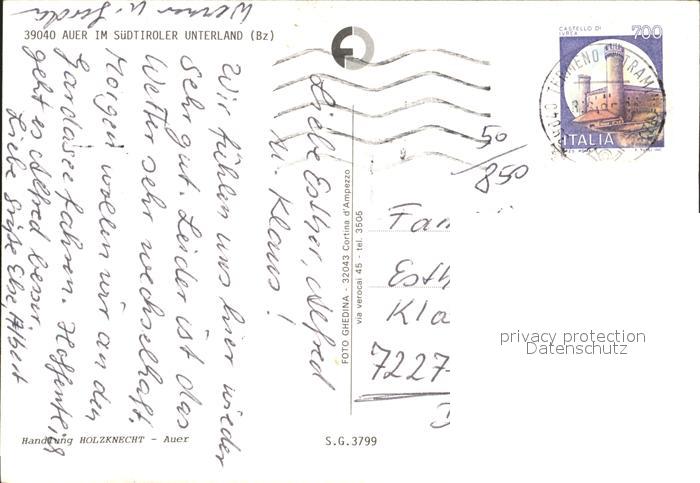 39040 AUER IM SÜDTIROLER UNTERLAND (Bz)
Liebe Esther, Alfred
u. Klaus!
Wir fühlen uns hier wieder
sehr gut. Leider ist das
Wetter sehr wechselhaft.
Morgen wollen wir an den
Gardasee fahren. Hoffentlich
geht es Alfred besser.
Liebe Grüße Else Albert
Werner u.
FOTO GHEDINA - 32043 Cortina d'Ampezzo
via verocai 45 - tel. 3505
CASTELLO DI
IVREA
700
ITALIA
50/850
Fam
Esth
Kla
7227
privacy protection
Datenschutz
Handlung HOLZKNECHT - Auer
S.G.3799